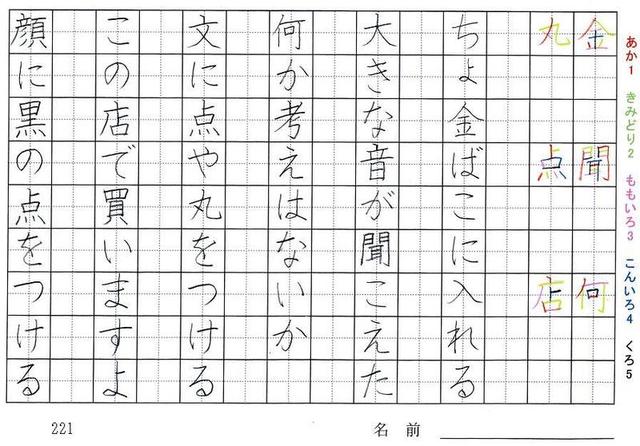 あか1 きみどり2 ももいろ3 こんいろ4 くろ5
金 聞 何
丸 点 店
ちょ金ばこに入れる
大きな音が聞こえた
何か考えはないか
文に点や丸をつける
この店で買いますよ
顔に黒の点をつける
221
名前